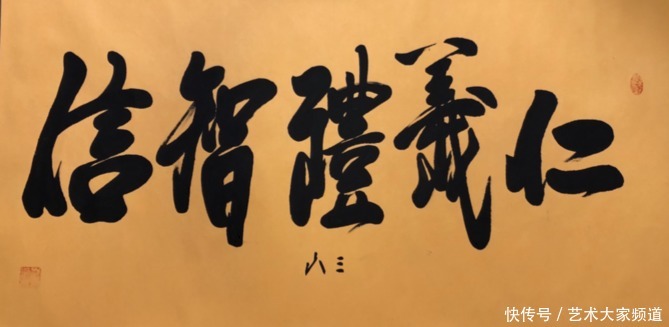 仁義禮智信
三山
快传号/艺术大家频道